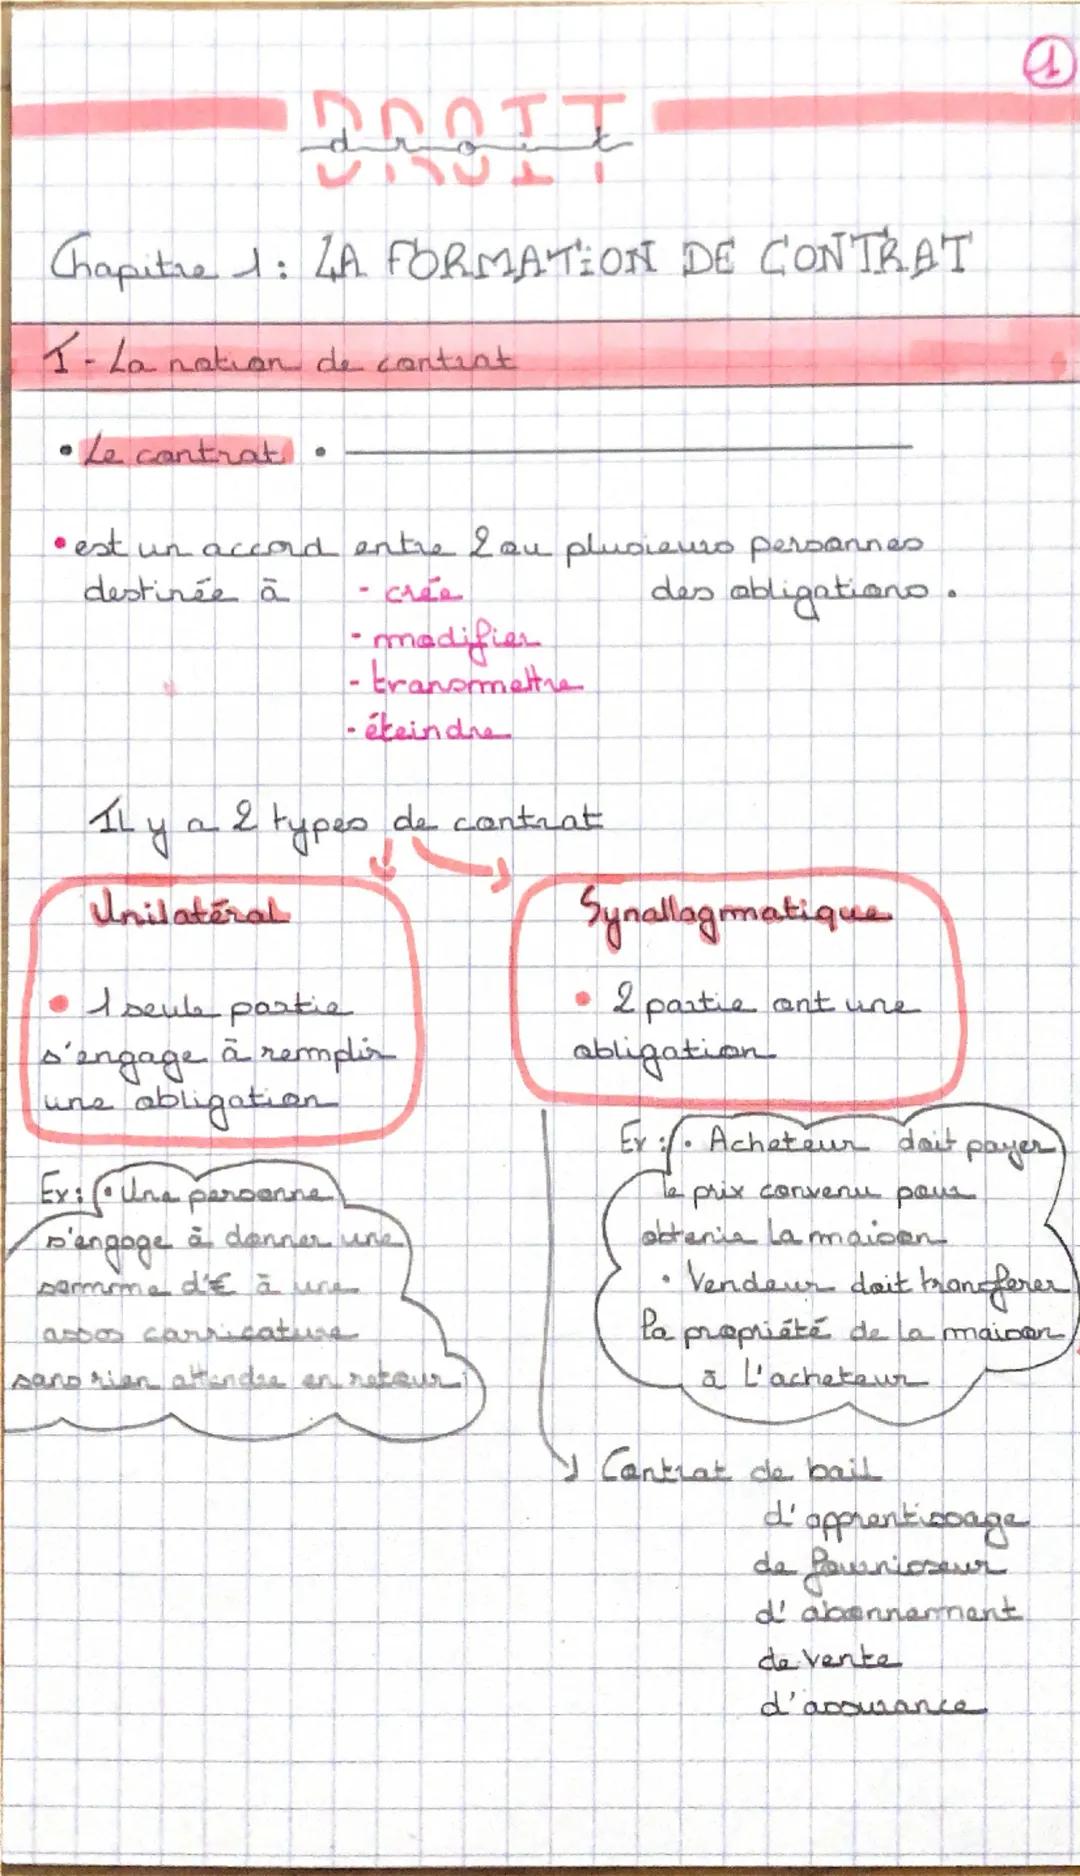 1
DROIT
droit
Chapitre 1 : LA FORMATION DE CONTRAT
I - La notion de contrat
• Le contrat •
• est un accord entre 2 ou plusieurs personnes
destinée à - crée des obligations.
- modifier
- transmettre
- éteindre
Il y a 2 types de contrat
Unilatéral
• 1 seule partie
s'engage à remplir
une obligation
Ex : • Une personne
s'engage à donner une
somme d'€ à une
assos carricature
sans rien attendre en retour
Synallagmatique
• 2 partie ont une
obligation
Ex : • Acheteur doit payer
le prix convenu pour
obtenir la maison
• Vendeur doit transferer
la propriété de la maison
à l'acheteur
Contrat de bail
d'apprentissage
de fournisseur
d'abonnement
de vente
d'assurance